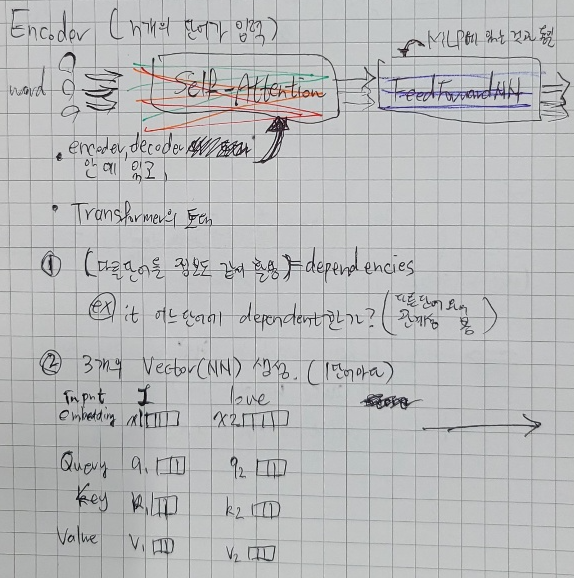 Encoder (n개의 단어가 입력)
MLP에 있는 것과 동일
word Self-Attention FeedForwardNN
• encoder, decoder
안에 있고,
• Transformer의 토대
① (다른단어들 정보도 같이 활용) = dependencies
ex) it 어느단어에 dependent한가? (다른단어와의
관계성 봄)
② 3개의 Vector(NN) 생성. (1단어마다)
Input I love
embedding x1 x2
Query q1 q2
Key k1 k2
Value v1 v2